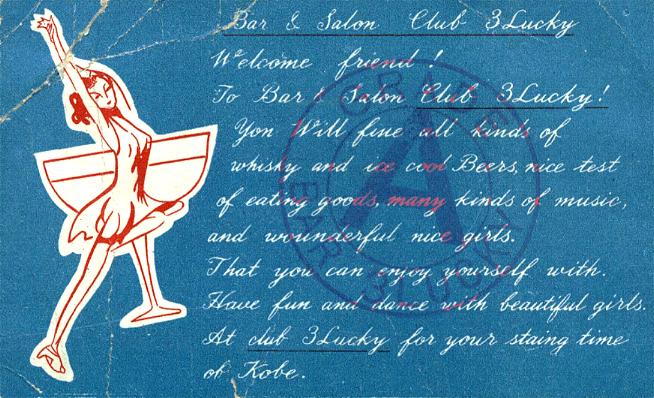 Bar & Salon Club 3Lucky
Welcome friend!
To Bar & Salon Club 3Lucky!
Yon Will fine all kinds of
whisky and ice cool Beers, nice test
of eating goods, many kinds of music,
and wounderful nice girls.
That you can enjoy yourself with.
Have fun and dance with beautiful girls.
At club 3Lucky for your staing time
of Kobe.
GRADE
A